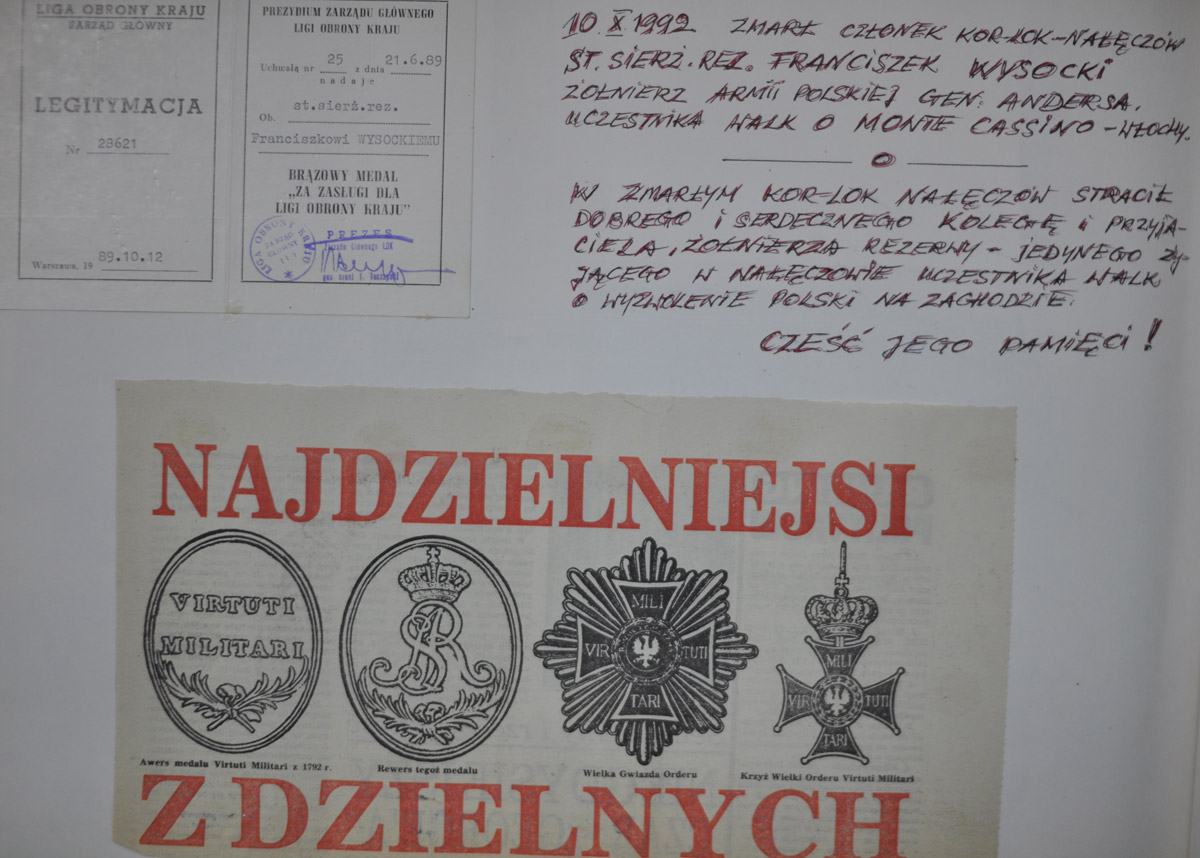 LIGA OBRONY KRAJU
ZARZĄD GŁÓWNY
LEGITYMACJA
Nr 28621
Warszawa, 19 89.10.12
PREZYDIUM ZARZĄDU GŁÓWNEGO
LIGI OBRONY KRAJU
Uchwałą nr 25 z dnia 21.6.89
nadaje
st.sierż.rez.
Ob.
Franciszkowi WYSOCKIEMU
BRĄZOWY MEDAL
„ZA ZASŁUGI DLA
LIGI OBRONY KRAJU”
LIGA OBRONY KRAJU
ZARZĄD
GŁÓWNY
PREZES
Zarządu Głównego LOK
10 X 1992 ZMARŁ CZŁONEK KOR-LOK-NAŁĘCZÓW
ST. SIERŻ. REZ. FRANCISZEK WYSOCKI
ŻOŁNIERZ ARMII POLSKIEJ GEN. ANDERSA.
UCZESTNIKA WALK O MONTE CASSINO - WŁOCHY.
W ZMARŁYM KOR-LOK NAŁĘCZÓW STRACIŁ
DOBREGO I SERDECZNEGO KOLEGĘ I PRZYJA-
CIELA, ŻOŁNIERZA REZERWY - JEDYNEGO ŻY-
JĄCEGO W NAŁĘCZOWIE UCZESTNIKA WALK
O WYZWOLENIE POLSKI NA ZACHODZIE.
CZEŚĆ JEGO PAMIĘCI!
NAJDZIELNIEJSI
VIRTUTI
MILITARI
SAR
MILI
VIR TUTI
TARI
MILI
VIR TUTI
TARI
Awers medalu Virtuti Militari z 1792 r.
Rewers tegoż medalu
Wielka Gwiazda Orderu
Krzyż Wielki Orderu Virtuti Militari
Z DZIELNYCH